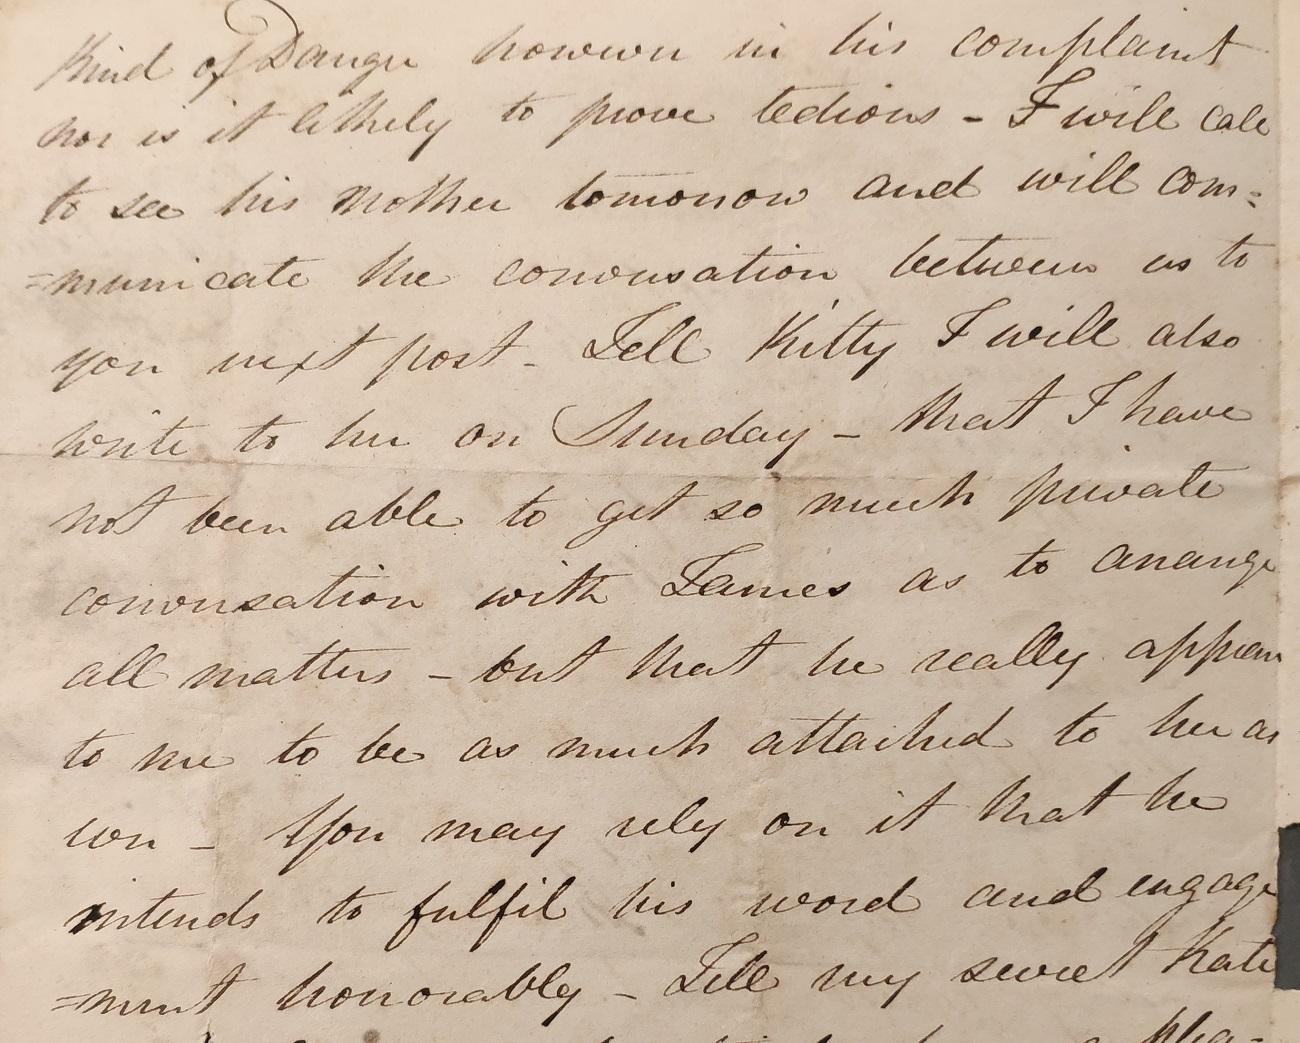 Kind of Danger however in his complaint
nor is it likely to prove tedious - I will call
to see his mother tomorrow and will com=
=municate the conversation between us to
you next post - Tell Kitty I will also
write to her on Sunday - that I have
not been able to get so much private
conversation with James as to arrange
all matters - but that he really appears
to me to be as much attached to her as
ever - You may rely on it that he
intends to fulfil his word and engage
=ment honorably - Tell my sweet Kate